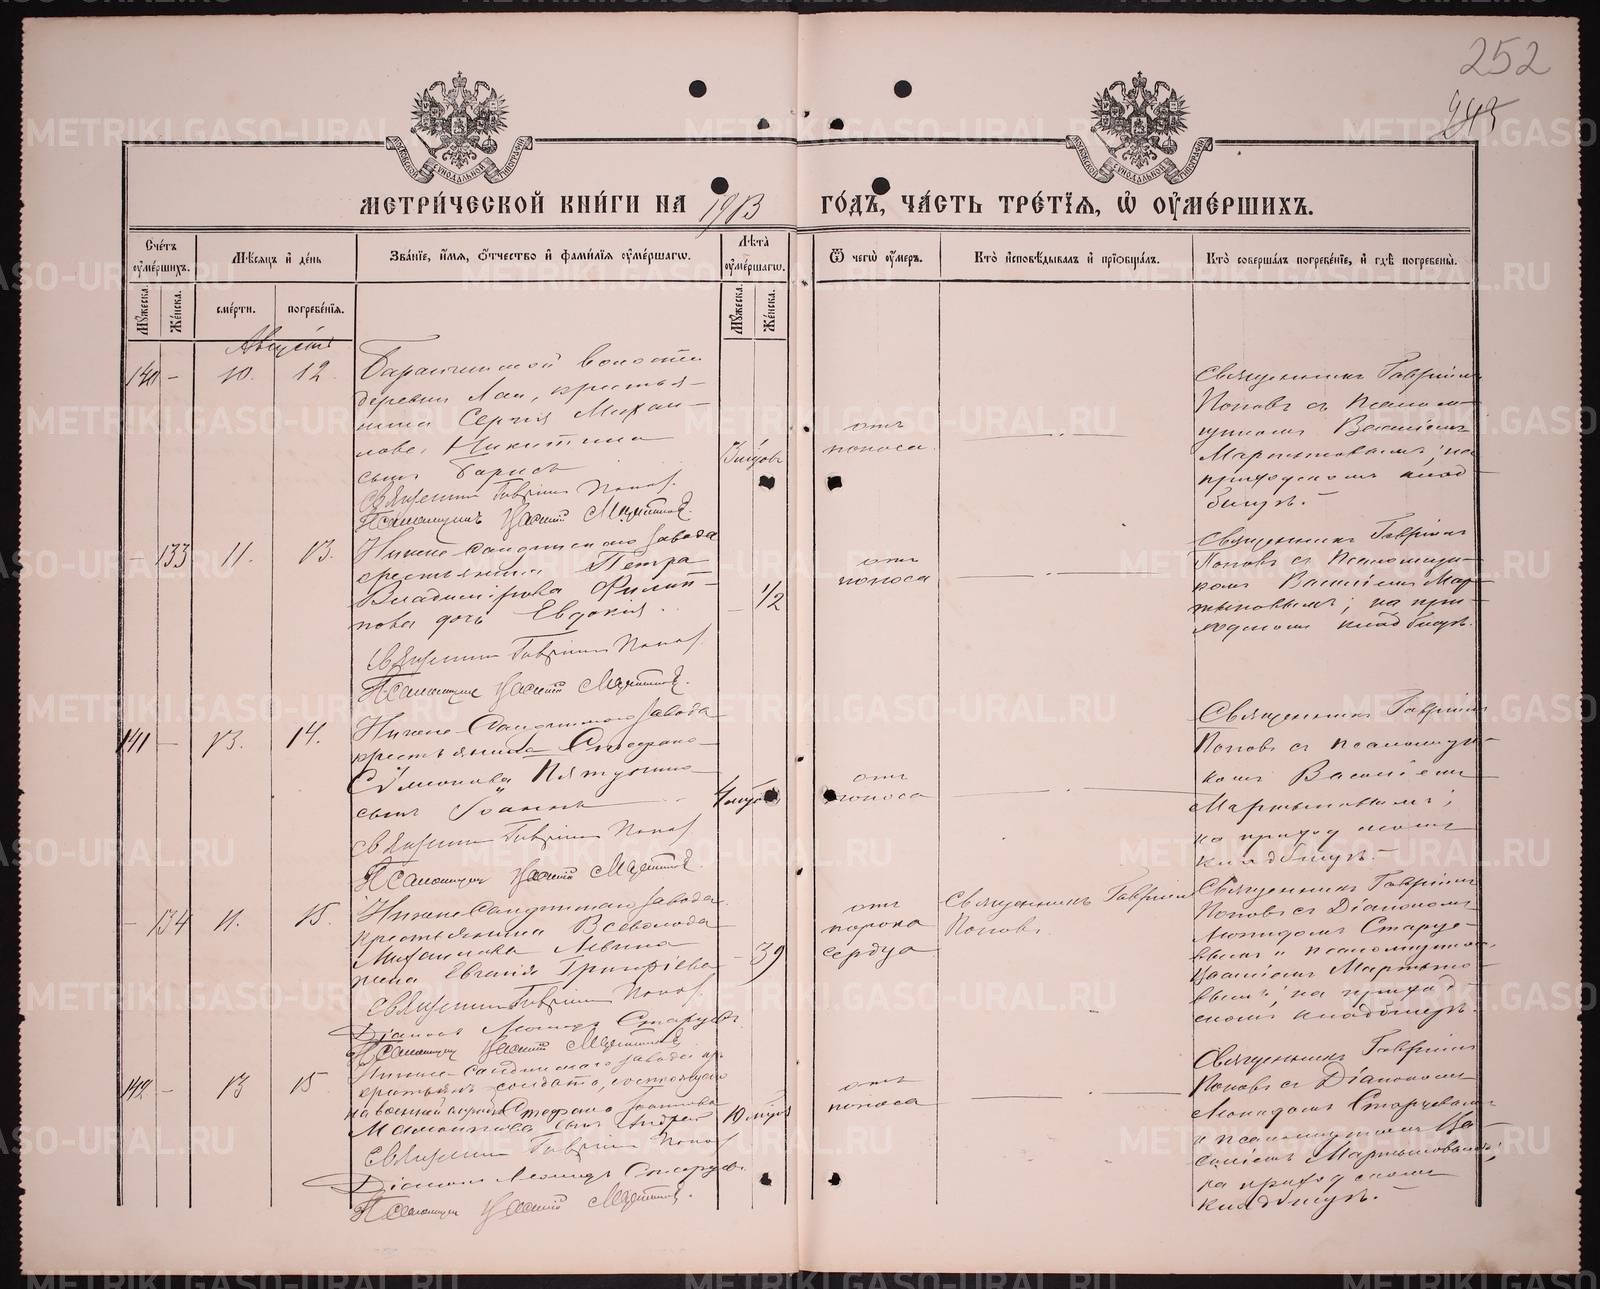 252
МЕТРИ́ЧЕСКОЙ КНИ́ГИ НА 1913 ГО́ДЪ, ЧА́СТЬ ТРЕ́ТІѦ, Ѡ ОУ҆МЕ́РШИХЪ.
Сче́тъ оу҆ме́ршихъ.
Мѣ́сяцъ и де́нь
Зва́нїе, и҆́мѧ, ѻ҆́тчество и҆ фами́лїѧ оу҆ме́ршагѡ.
Лѣ́та оу҆ме́ршагѡ.
Ѿ чегѡ̀ оу҆́меръ.
Кто̀ и҆сповѣ́дывалъ и҆ прїѡбща́лъ.
Кто̀ соверша́лъ погребе́нїе, и҆ гдѣ̀ погребены̀.
Мꙋ́жеска.
Же́нска.
сме́рти.
погребе́нїѧ.
Мꙋ́жеска.
Же́нска.
Августъ
140 - 10. 12.
Баранчинской волости
деревни Лаи, крестья-
нина Сергія Михаи-
лова Никитина
сынъ Борисъ
Священникъ Гавріилъ Поповъ.
Псаломщикъ Василій Мартыновъ.
отъ
поноса.
Священникъ Гавріилъ
Поповъ съ псалом-
щикомъ Василіемъ
Мартыновымъ; на
приходскомъ клад-
бищѣ.
- 133 11. 13.
Нижне-Салдинскаго завода
крестьянина Петра
Владимірова Филип-
пова дочь Евдокія.
Священникъ Гавріилъ Поповъ.
Псаломщикъ Василій Мартыновъ.
- 1/2
отъ
поноса
Священникъ Гавріилъ
Поповъ съ псаломщи-
комъ Василіемъ Мар-
тыновымъ; на при-
ходскомъ кладбищѣ.
141 - 13. 14.
Нижне-Салдинскаго завода
крестьянина Стефана
Симонова
сынъ Іоаннъ
Священникъ Гавріилъ Поповъ
Псаломщикъ Василій Мартыновъ.
отъ
поноса
Священникъ Гавріилъ
Поповъ съ псаломщи-
комъ Василіемъ
Мартыновымъ;
на приходскомъ
кладбищѣ.
- 134 11. 15.
Нижне-Салдинскаго завода
крестьянина Всеволода
Михаилова
жена Евгенія
Священникъ Гавріилъ Поповъ
Діаконъ Леонидъ Старцевъ.
Псаломщикъ Василій Мартыновъ.
- 39
отъ
порока
сердца
Священникъ Гавріилъ
Поповъ.
Священникъ Гавріилъ
Поповъ съ Діакономъ
Леонидомъ Старце-
вымъ и псаломщикомъ
Василіемъ Мартыно-
вымъ; на приход-
скомъ кладбищѣ.
142 - 13 15
Нижне-Салдинскаго завода
на военной службѣ Стефана
сынъ Андрей
Священникъ Гавріилъ Поповъ
Діаконъ Леонидъ Старцевъ.
Псаломщикъ Василій Мартыновъ.
отъ
поноса
Священникъ Гавріилъ
Поповъ съ Діакономъ
Леонидомъ Старцевымъ
и псаломщикомъ Ва-
силіемъ Мартыновымъ;
на приходскомъ
кладбищѣ.
METRIKI.GASO-URAL.RU